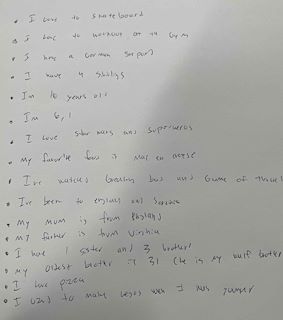 • I love to skateboard
• I love to workout at the gym
• I have a German
• I have 4
• I'm years old
• I'm 6,1
• I love star wars and superheros
• My favorite food is mac en
• I've watched breaking bad and Game of thrones
• I've been to england and
• My mum is from England
• My father is from Virginia
• I have 1 sister and 3 brothers
• My oldest brother is 31 (he is my half brother
• I love pizza
• I used to make legos when I was younger